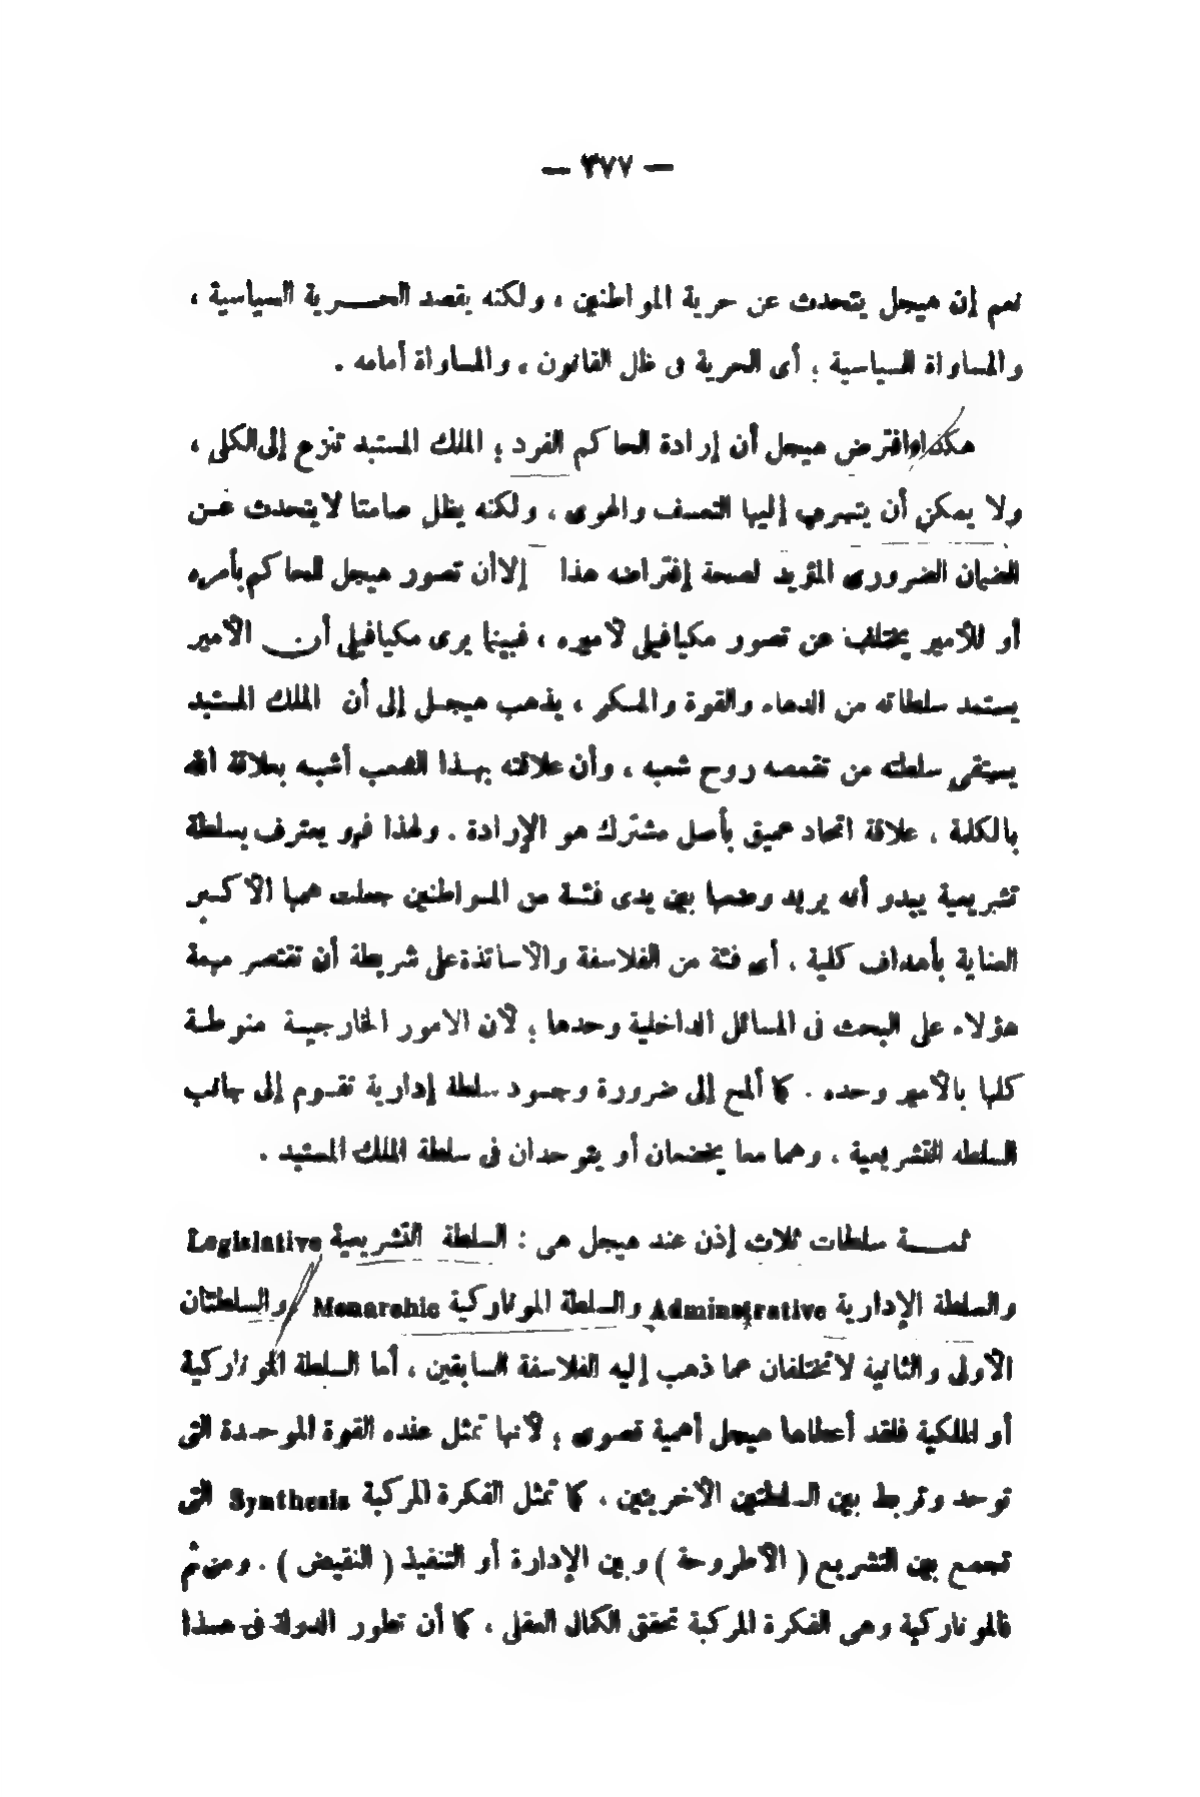 — ٣٧٧ —
نعم إن هيجل يتحدث عن حرية المواطنين ، ولكنه يقصد الحـــرية السياسية ،
والمساواة السياسية ؛ أى الحرية فى ظل القانون ، والمساواة أمامه .
هكذا وافترض هيجل أن إرادة الحاكم الفرد ؛ الملك المستبد تنزع إلى الكلى ،
ولا يمكن أن يتسرب إليها التعسف والهوى ، ولكنه يظل صامتا لا يتحدث عـن
الضمان الضرورى المؤيد لصحة إفتراضه هذا إلا أن تصور هيجل للحاكم بأمره
أو للأمير يختلف عن تصور مكيافيلى لأميره ، فبينما يرى مكيافيلى أن الأمير
يستمد سلطاته من الدهاء والقوة والمكر ، يذهب هيجـل إلى أن الملك المستبد
يستقى سلطته من تقمصه روح شعبه ، وأن علاقته بهـذا الشعب أشبـه بعلاقة الله
بالكلمة ، علاقة اتحاد عميق بأصل مشترك هو الإرادة . ولهذا فهو يعترف بسلطة
تشريعية يبدو أنه يريد وضعها بين يدى فئـة من المـواطنين جعلت همها الأكـبر
العناية بأهداف كلية ، أى فئة من الفلاسفة والأساتذة على شريطة أن تقتصر مهمة
هؤلاء على البحث فى المسائل الداخلية وحدها ؛ لأن الامور الخارجيـة منوطـة
كلها بالأمير وحده . كما ألمح إلى ضرورة وجـود سلطة إدارية تقـوم إلى جانب
السلطه التشريعية ، وهما معا يخضعان أو يتوحدان فى سلطة الملك المستبد .
ثمـــة سلطات ثلاث إذن عند هيجل هى : السلطة التشريعية Legislative
والسلطة الإدارية Adminstrative والسلطة الموناركية Monarchic ، والسلطتان
الأولى والثانية لا تختلفان عما ذهب إليه الفلاسفة السابقين ، أما السلطة الموناركية
أو الملكية فلقد أعطاها هيجل أهمية قصوى ؛ لأنها تمثل عنده القوة الموحـدة التى
توحد وتربط بين السلطتين الأخريتين ، كما تمثل الفكرة المركبة Synthesis التى
تجمـع بين التشريع ( الأطروحة ) وبين الإدارة أو التنفيذ ( النقيض ) . ومن ثم
فالموناركية وهى الفكرة المركبة تحقق الكمال العقلى ، كما أن تطور الدولة فى هـذا